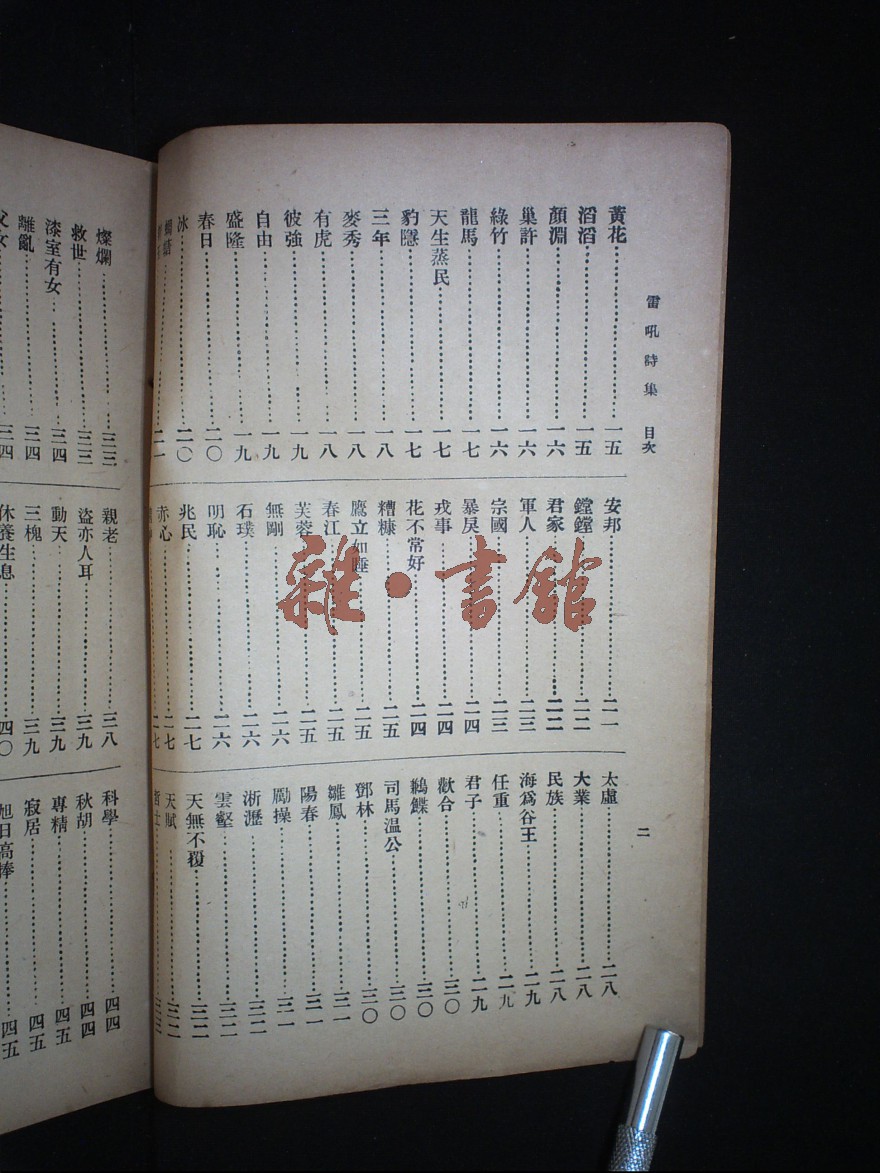 雷吼詩集 目次
二
黃花 一五
滔滔 一五
顏淵 一六
巢許 一六
綠竹 一六
龍馬 一七
天生蒸民 一七
豹隱 一七
三年 一八
麥秀 一八
有虎 一八
彼強 一九
自由 一九
盛隆 一九
春日 二〇
冰 二〇
二一
安邦 二一
鏜鏜 二二
君家 二二
軍人 二三
宗國 二三
暴戾 二四
戎事 二四
花不常好 二四
糟糠 二五
鷹立如睡 二五
春江 二五
芙蓉 二五
無剛 二六
石璞 二六
明恥 二六
兆民 二七
赤心 二七
二七
太虛 二八
大業 二八
民族 二八
海為谷王 二九
任重 二九
君子 二九
歡合 三〇
鶼鰈 三〇
司馬温公 三〇
鄧林 三〇
雛鳳 三一
陽春 三一
勵操 三一
淅瀝 三二
雲壑 三二
天無不覆 三二
天賦 三二
三三
燦爛 三三
救世 三三
漆室有女 三四
離亂 三四
三四
親老 三八
盜亦人耳 三九
動天 三九
三槐 三九
休養生息 四〇
科學 四四
秋胡 四四
專精 四五
寂居 四五
旭日高捧 四五
雜·書館